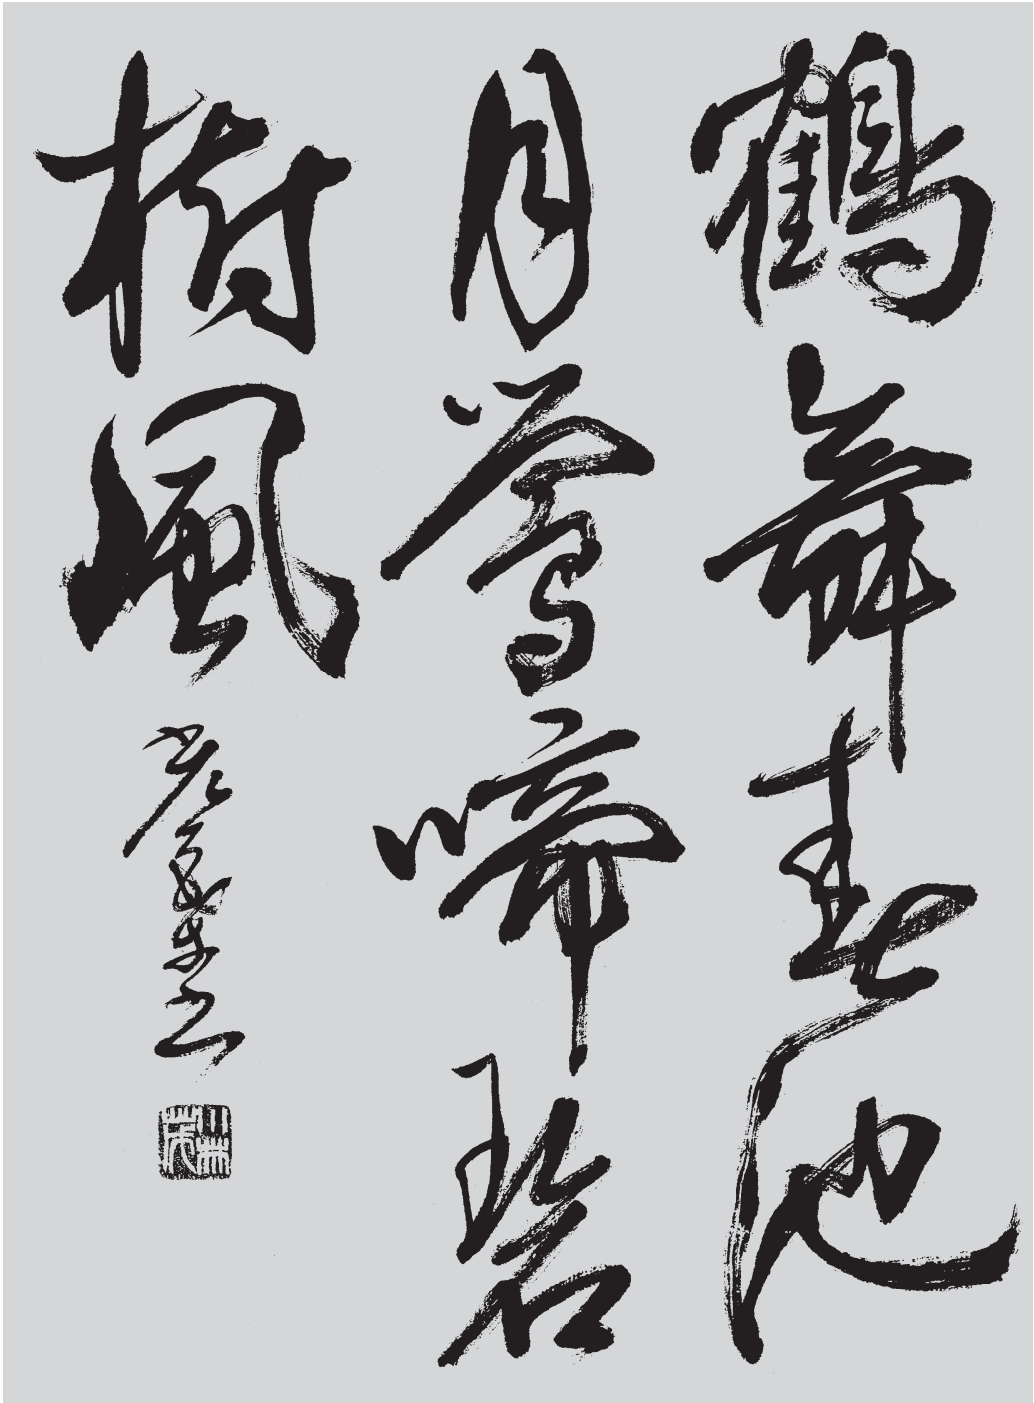 鶴舞春池
月鶯啼碧
樹風